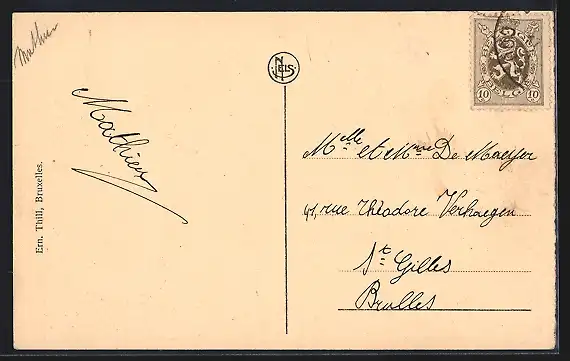 Mathieu
Mathieu
Ern. Thill, Bruxelles.
NELS
BELGIQUE
BELGIË
10 10
Melle et Mme De Maeyer
41, rue Théodore Verhaegen
St Gilles
Brulles